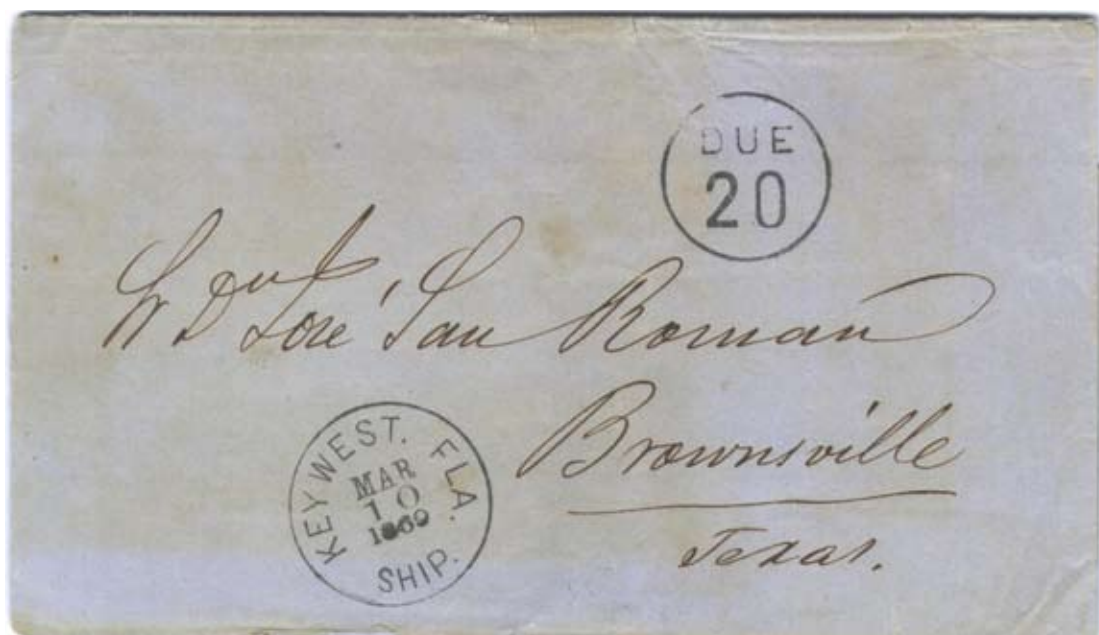 DUE
20
Sr Dn José San Roman
Brownsville
Texas.
KEY WEST. FLA.
MAR
10
1869
SHIP.